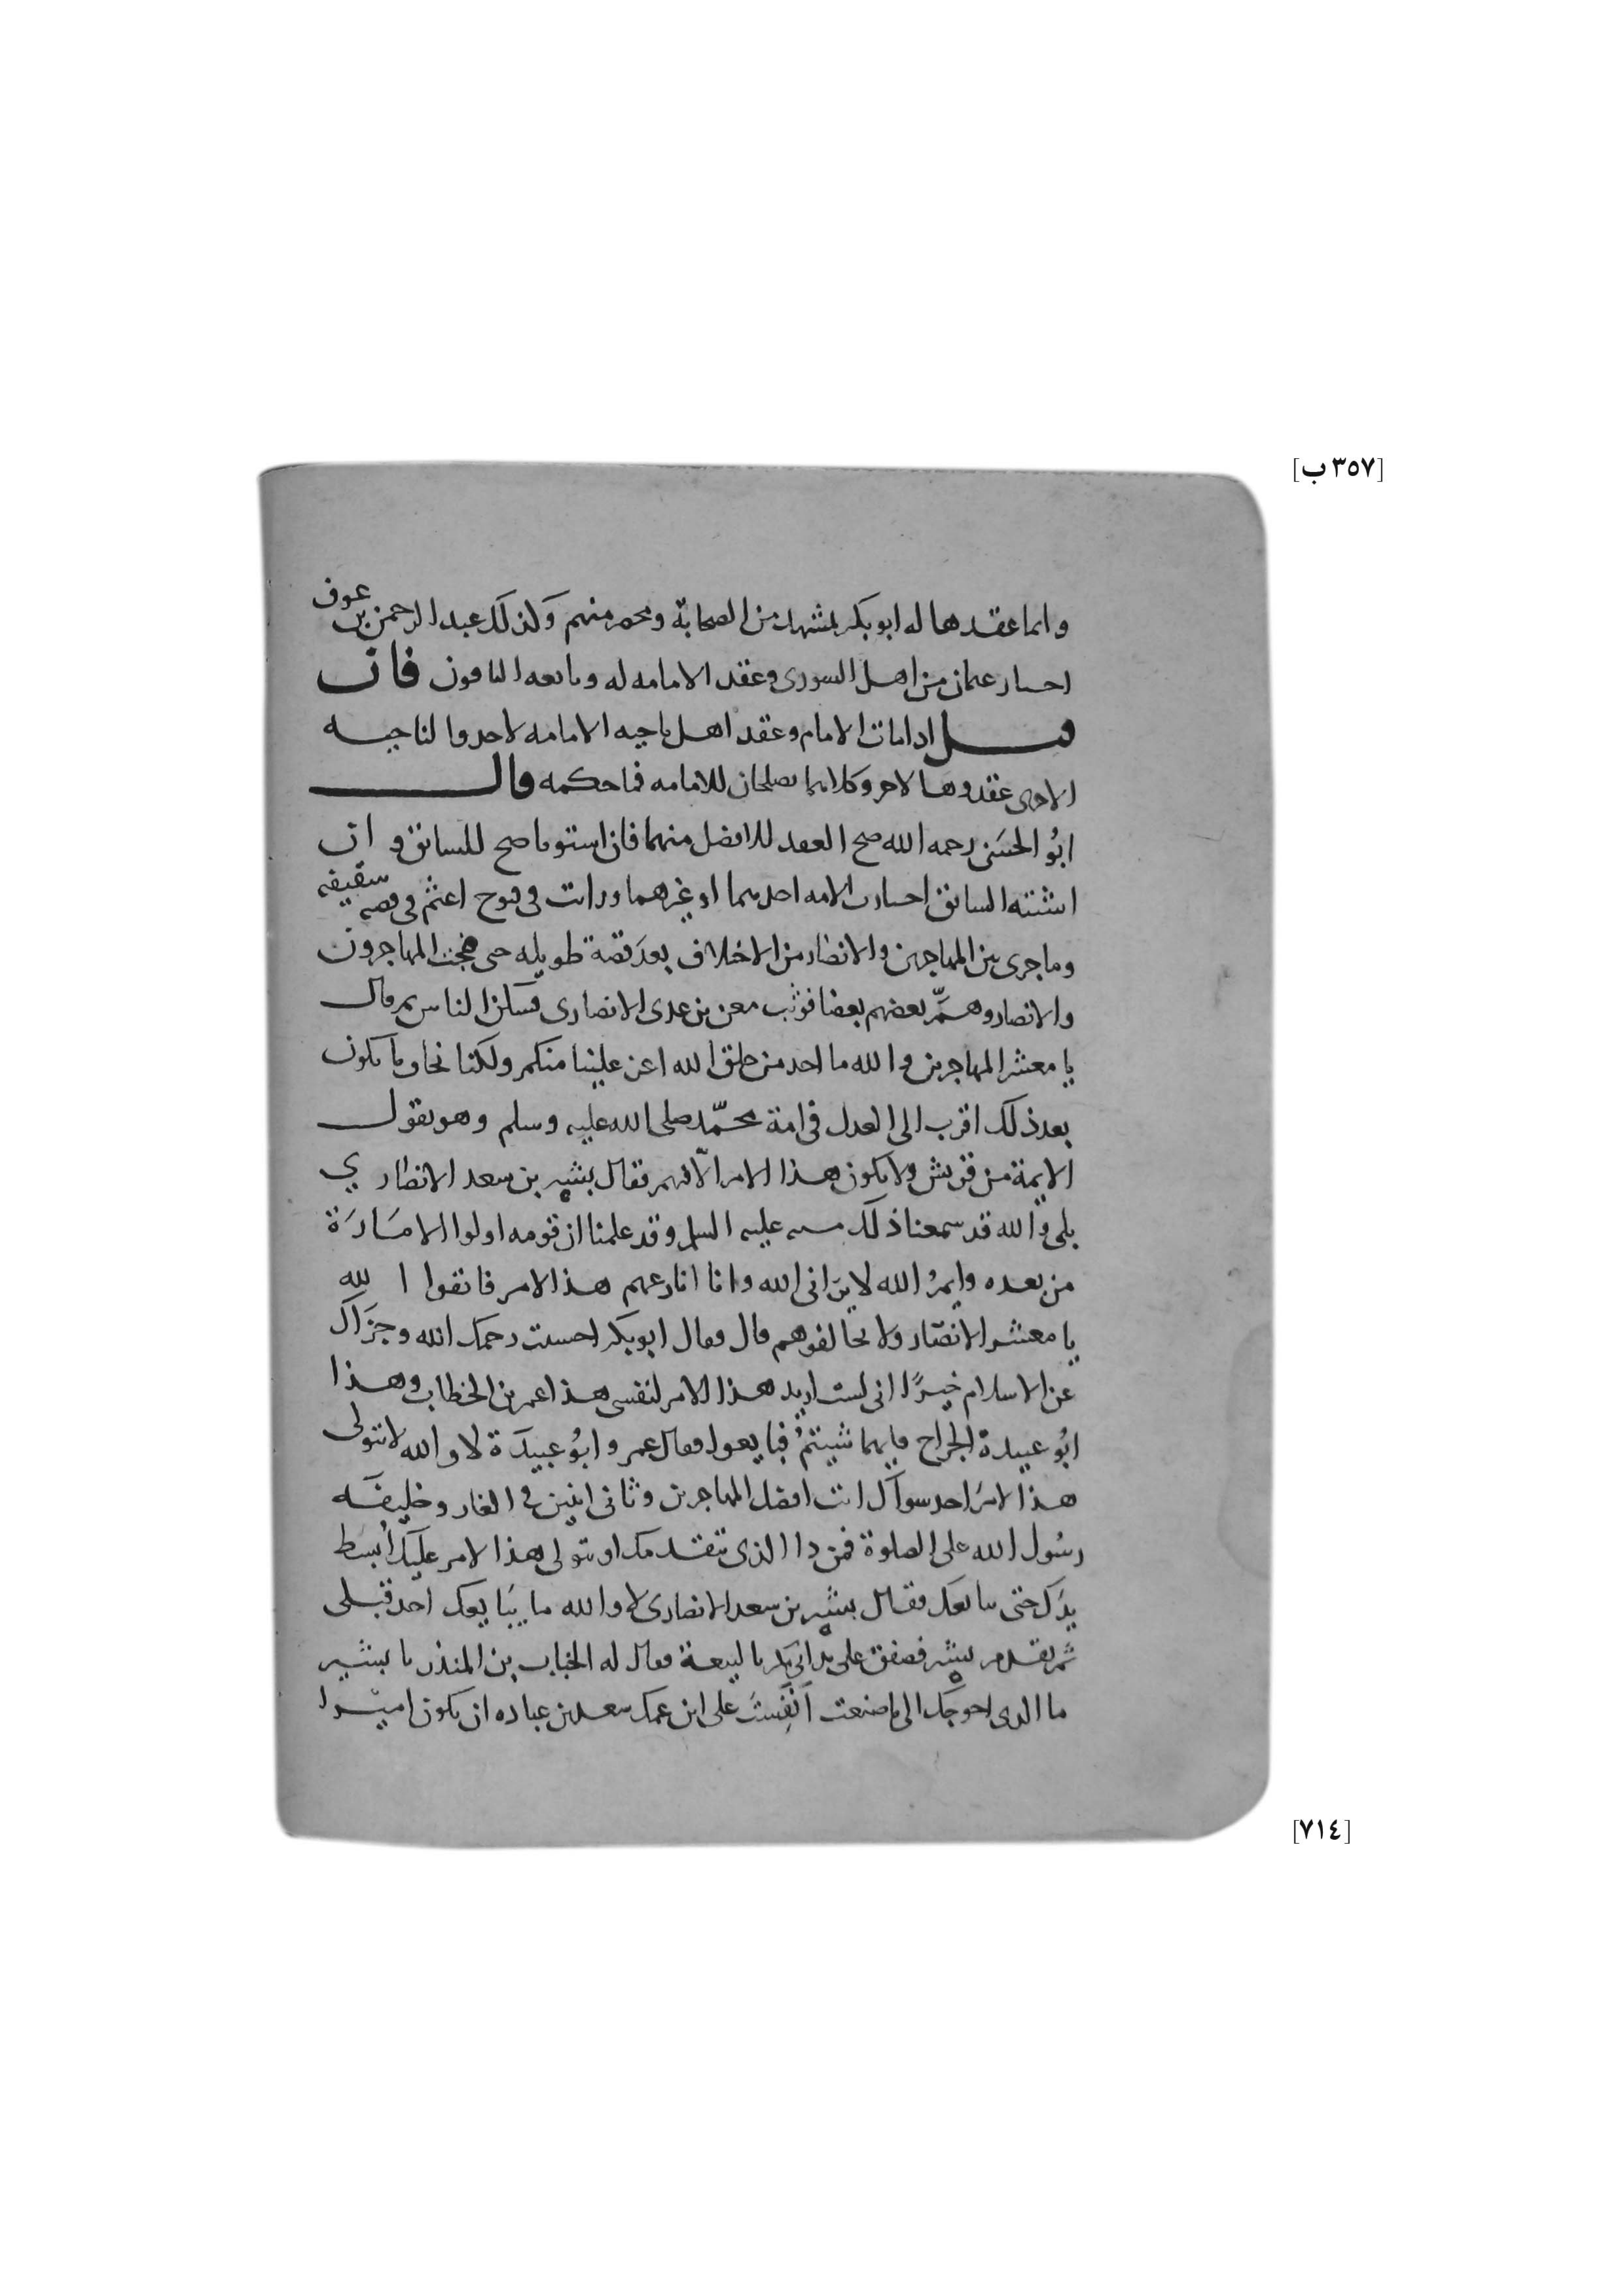 [٣٥٧ ب]
وانما عقدها له ابو بكر بمشهد من الصحابة ومحضر منهم وكذلك عبد الرحمن بن عوف
اختار عثمان من اهل الشورى وعقد الامامه له وتابعه الباقون فان
قيل اذا مات الامام وعقد اهل ناحيه الامامه لاحد والناحيه
الاخرى عقدوها لاخر وكلاهما يصلحان للامامه فما حكمه قال
ابو الحسن رحمه الله صح العقد للافضل منهما فان استويا صح للسابق وان
اشتبه السابق اختارت الامه احدهما او غيرهما ورايت في فتوح اعثم في قصه سقيفه
وما جرى بين المهاجرين والانصار من الاختلاف بعد قصة طويله حتى ضجت المهاجرون
والانصار وهمّ بعضهم بعضا فوثب معن بن عدى الانصارى فسكن الناس ثم قال
يا معشر المهاجرين والله ما احد من خلق الله اعز علينا منكم ولكنا نخاف ما يكون
بعد ذلك اقرب الى العدل في امة محمّد صلى الله عليه وسلم وهو يقول
الايمة من قريش ولا يكون هذا الامر الّا فيهم فقال بشير بن سعد الانصاري
بلى والله قد سمعنا ذلك منه عليه السلم وقد علمنا ان قومه اولوا الامارة
من بعده وايمُ الله لا يرانى الله وانا انازعهم هذا الامر فاتقوا الله
يا معشر الانصار ولا تخالفوهم قال فقال ابو بكر احسنت رحمك الله وجزاك
عن الاسلام خيرًا انى لست اريد هذا الامر لنفسى هذا عمر بن الخطاب وهذا
ابُو عبيدة الجراح فايهما شيتمُ فبايعوا فقال عمر وابُو عبيدَة لا والله لا يتولى
هذا الامرَ احد سواك انت افضل المهاجرين وثانى اثنين في الغار وخليفَه
رسُول الله على الصلوة فمن ذا الذى يتقدمك او يتولى هذا الامر عليك اُبسط
يدَك حتى نبايعك فقال بشير بن سعد الانصارى لا والله ما يبَايعك احد قبلى
ثم تقدم بشير فصفق على يد ابى بكر بالبيعة فقال له الحباب بن المنذر يا بشير
ما الذى احوجك الى ما صنعت اَنَفِستَ على ابن عمك سعد بن عباده ان يكون اميرا
[٧١٤]